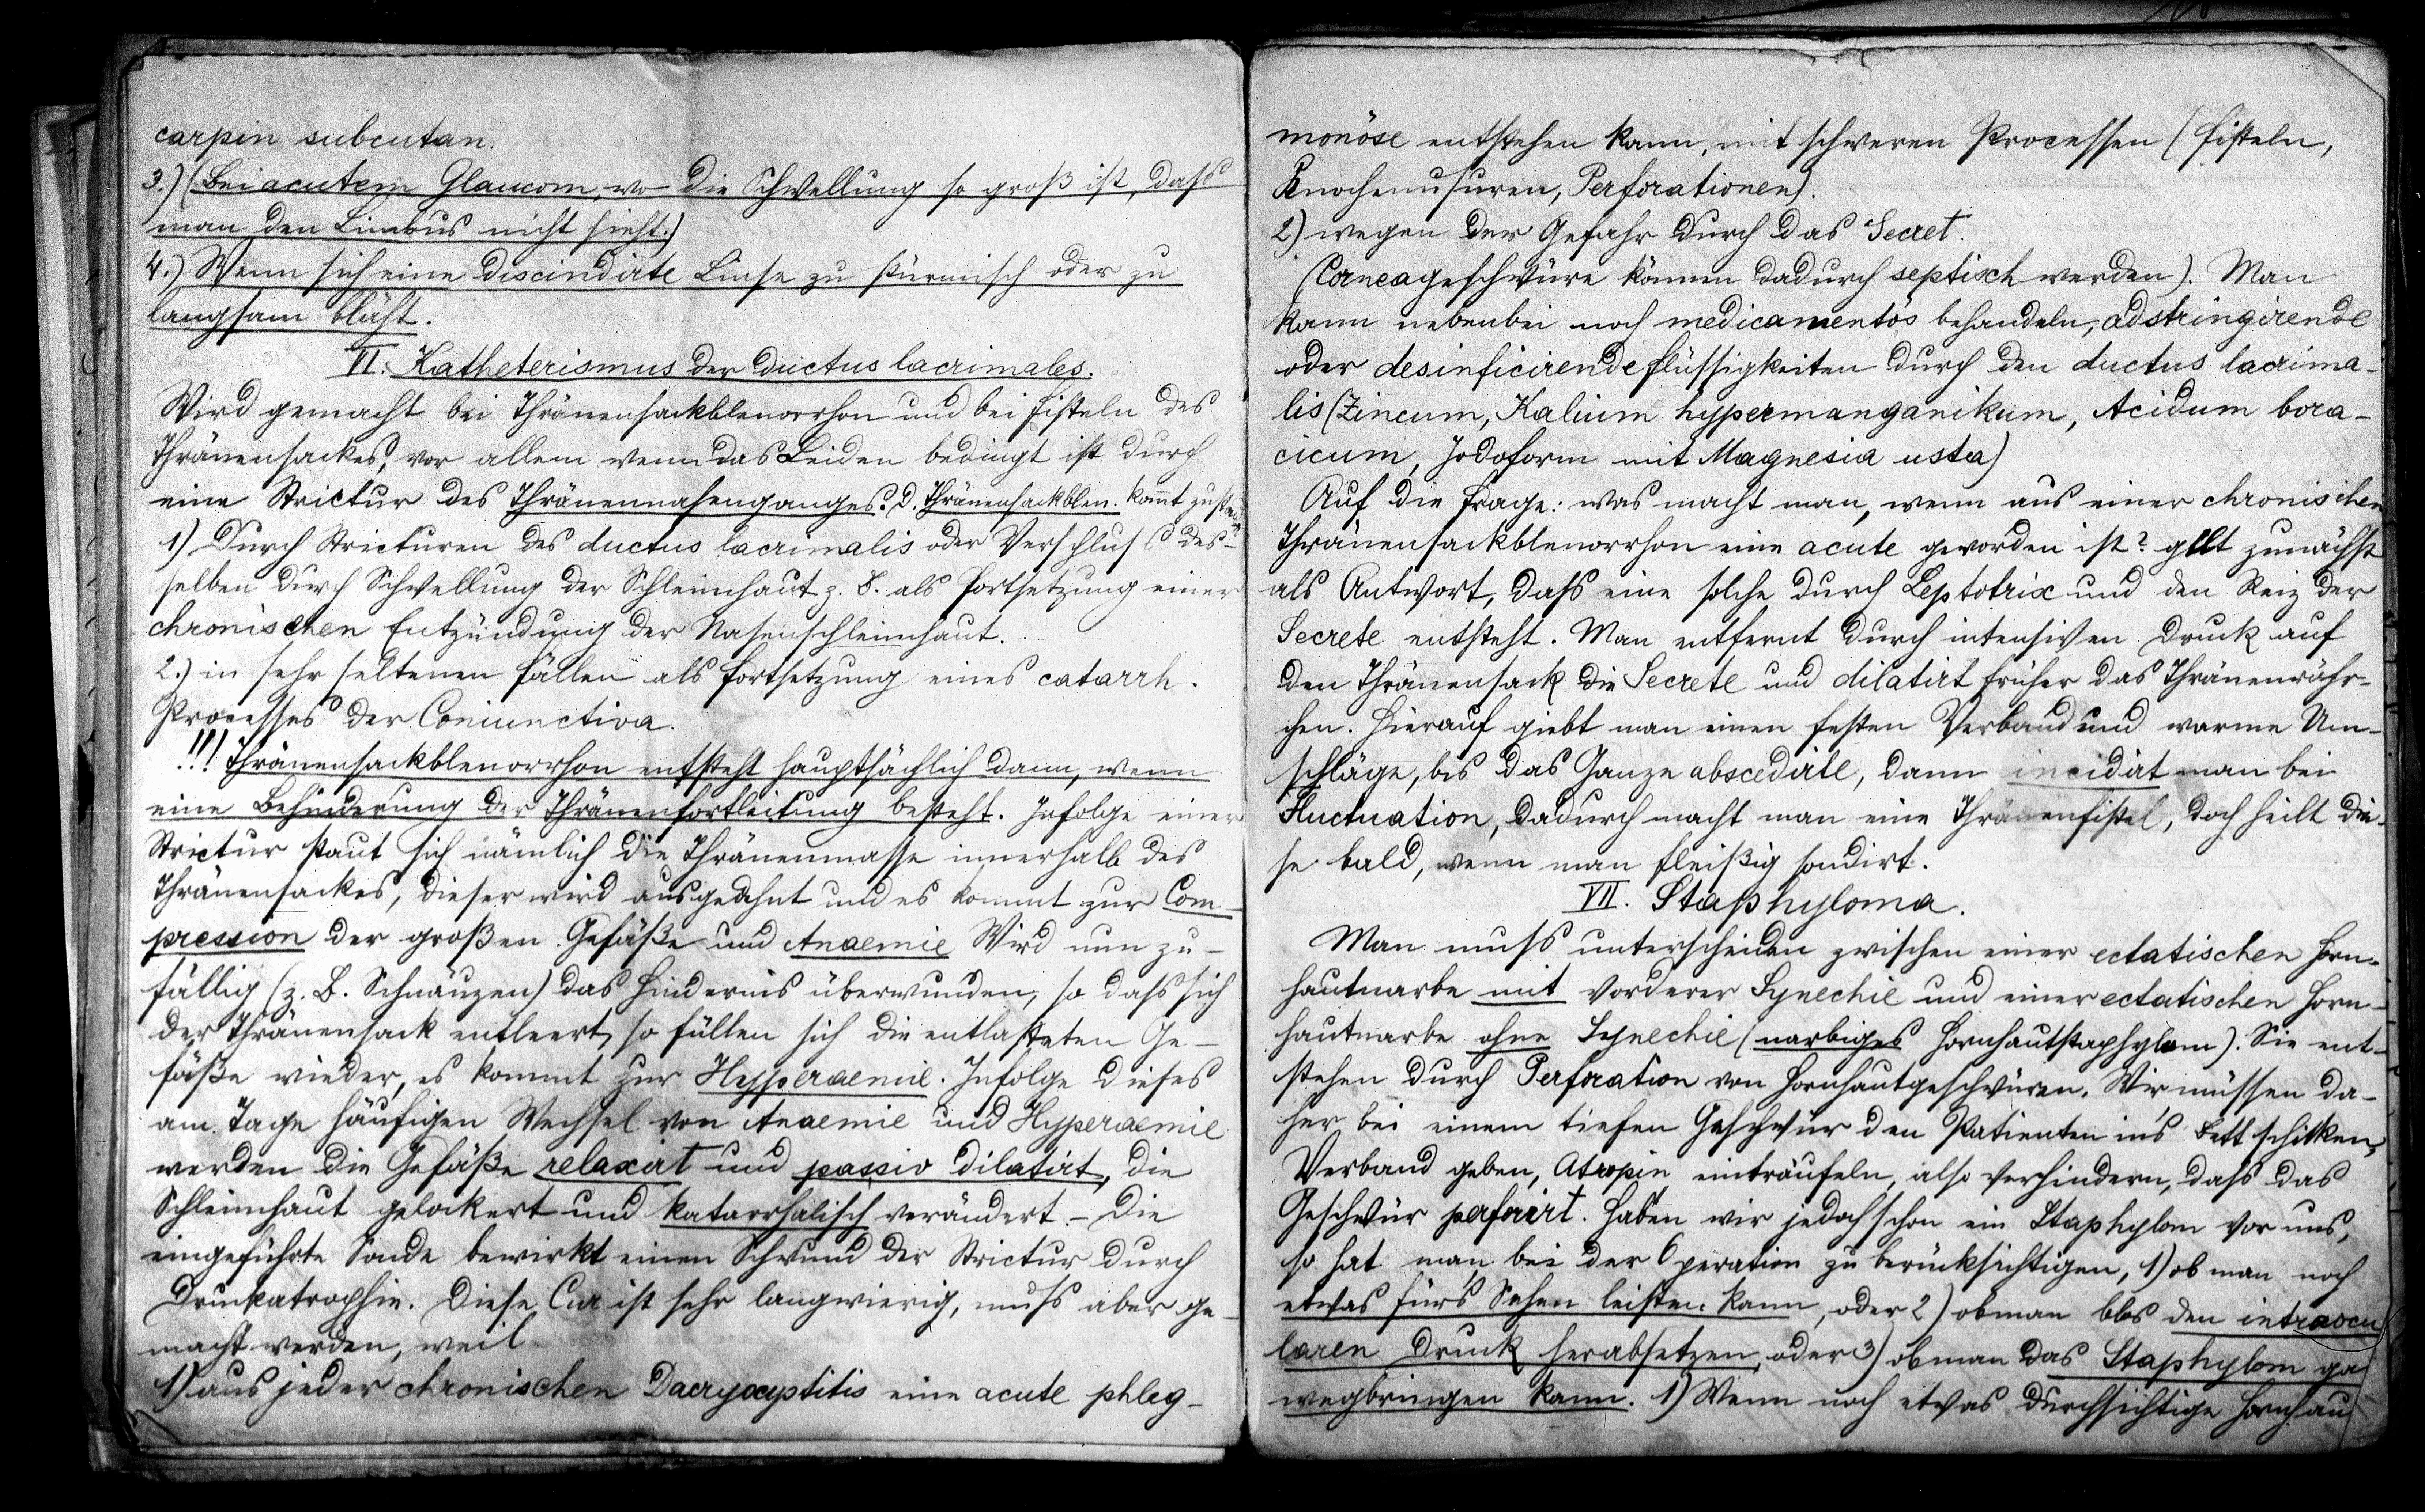 carpin subcutan.
3.) (Bei acutem Glaucom, wo die Schwellung so groß ist, dass
man den Limbus nicht sieht.)
4.) Wenn sich eine discindirte Linse zu stürmisch oder zu
langsam bläht.
VI. Katheterismus der ductus lacrimales.
Wird gemacht bei Thränensackblenorrhon und bei Fisteln des
Thränensackes, vor allem wenn das Leiden bedingt ist durch
eine Strictur des Thränennasenganges. D. Thränensackblen. kommt zustande
1) Durch Stricturen des ductus lacrimalis oder Verschluss des-
selben durch Schwellung der Schleimhaut z. B. als Fortsetzung einer
chronischen Entzündung der Nasenschleimhaut.
2.) in sehr seltenen Fällen als Fortsetzung eines catarrh.
Processes der Coniunctiva.
!!! Thränensackblenorrhon entsteht hauptsächlich dann, wenn
eine Behinderung der Thränenfortleitung besteht. Infolge einer
Strictur staut sich nämlich die Thränenmasse innerhalb des
Thränensackes, dieser wird ausgedehnt und es kommt zur Com-
pression der großen Gefäße und Anaemie Wird nun zu-
fällig (z. B. Schnäuzen) das Hindernis überwunden, so dass sich
der Thränensack entleert, so füllen sich die entlasteten Ge-
fäße wieder, es kommt zur Hyperaemie. Infolge dieses
am Tage häufigen Wechsel von Anaemie und Hyperaemie
werden die Gefäße relaxirt und passiv dilatirt, die
Schleimhaut gelockert und katarrhalisch verändert. – Die
eingeführte Sonde bewirkt einen Schwund der Strictur durch
Druckatrophie. Diese Cur ist sehr langwierig, muss aber ge-
macht werden, weil
1) aus jeder chronischen Dacryocystitis eine acute phleg-
monöse entstehen kann, mit schweren Processen (Fisteln,
Knochenusuren, Perforationen).
2) wegen der Gefahr durch das Secret.
(Corneageschwüre können dadurch septisch werden). Man
kann nebenbei noch medicamentös behandeln, adstringirende
oder desinficirende Flüssigkeiten durch den ductus lacrima-
lis (Zincum, Kalium hypermanganikum, Acidum bora-
cicum, Jodoform mit Magnesia usta)
Auf die Frage: was macht man, wenn aus einer chronischen
Thränensackblenorrhon eine acute geworden ist? gilt zunächst
als Antwort, dass eine solche durch Leptotrix und den Reiz der
Secrete entsteht. Man entfernt durch intensiven Druck auf
den Thränensack die Secrete und dilatirt früher das Thränenröhr-
chen. Hierauf giebt man einen festen Verband und warme Um-
schläge, bis das Ganze abscedirte, dann incidirt man bei
Fluctuation, dadurch macht man eine Thränenfistel, doch heilt die-
se bald, wenn man fleißig sondirt.
VII. Staphyloma.
Man muss unterscheiden zwischen einer ectatischen Horn-
hautnarbe mit vorderer Synechie und einer ectatischen Horn-
hautnarbe ohne Synechie (narbiges Hornhautstaphylom). Sie ent-
stehen durch Perforation von Hornhautgeschwüren. Wir müssen da-
her bei einem tiefen Geschwür den Patienten in's Bett schicken,
Verband geben, Atropin einträufeln, also verhindern, dass das
Geschwür perforirt. Haben wir jedoch schon ein Staphylom vor uns,
so hat man bei der Operation zu berücksichtigen, 1) ob man noch
etwas für's Sehen leisten kann, oder 2) ob man blos den intraocu
laren Druck herabsetzen oder 3) ob man das Staphylom ga
wegbringen kann. 1) Wenn noch etwas durchsichtige Hornhau